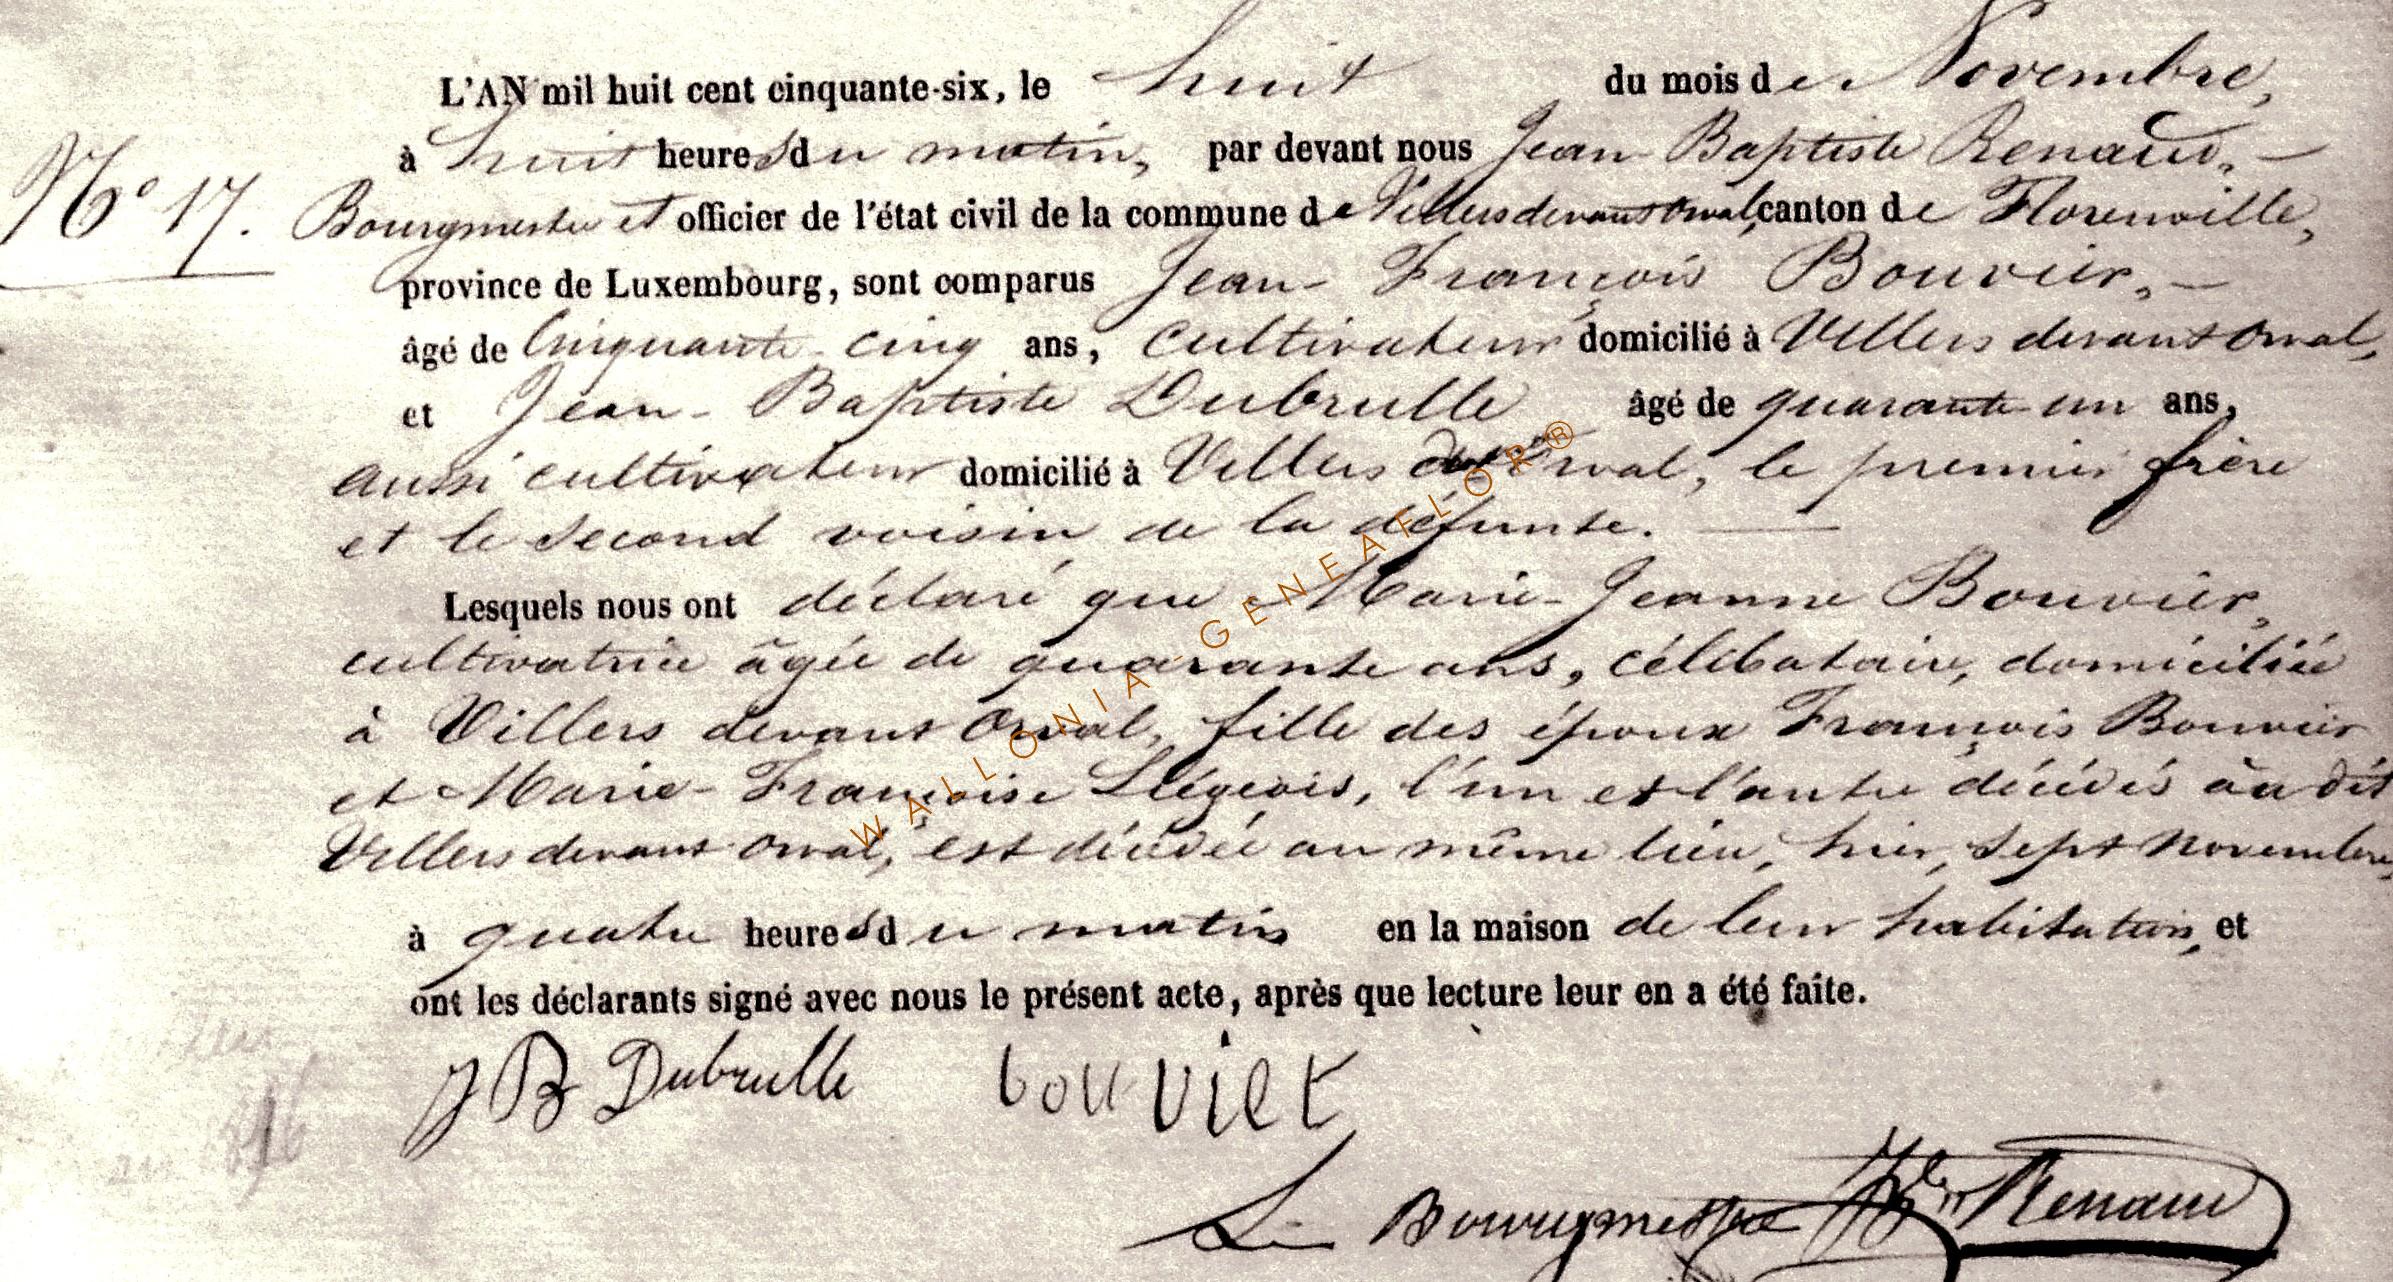 L'AN mil huit cent cinquante-six, le huit du mois de Novembre,
à huit heures du matin, par devant nous Jean Baptiste Renaud,
N° 17. Bourgmestre et officier de l'état civil de la commune de Villers devant Orval, canton de Florenville,
province de Luxembourg, sont comparus Jean-François Bouvier,
âgé de Cinquante-cinq ans, cultivateur domicilié à Villers devant Orval,
et Jean-Baptiste Dubrulle âgé de quarante-un ans,
aussi cultivateur domicilié à Villers devt Orval, le premier frère
et le second voisin de la défunte.
Lesquels nous ont déclaré que Marie-Jeanne Bouvier,
cultivatrice âgée de quarante ans, célibataire, domiciliée
à Villers devant Orval, fille des époux François Bouvier
et Marie-Françoise Liégeois, l'un et l'autre décédés àu dit
Villers devant Orval, est décédée au même lieu, hier, sept novembre,
à quatre heures du matin en la maison de leur habitation, et
ont les déclarants signé avec nous le présent acte, après que lecture leur en a été faite.
J B Dubrulle bouvier
Le Bourgmestre Renaud
WALLONIA-GENEAFLOR®